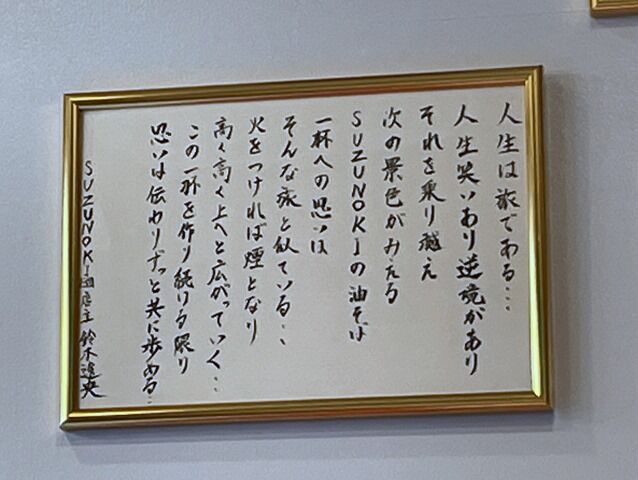 人生は旅である...
人生笑いあり逆境があり
それを乗り越え
次の景色がみえる
SUZUNOKIの油そば
一杯への思いは
そんな旅と似ている...
火をつければ煙となり
高く高く上へと広がっていく...
この一杯を作り続ける限り
思いは伝わりずっと共に歩める...
SUZUNOKI 店主 鈴木